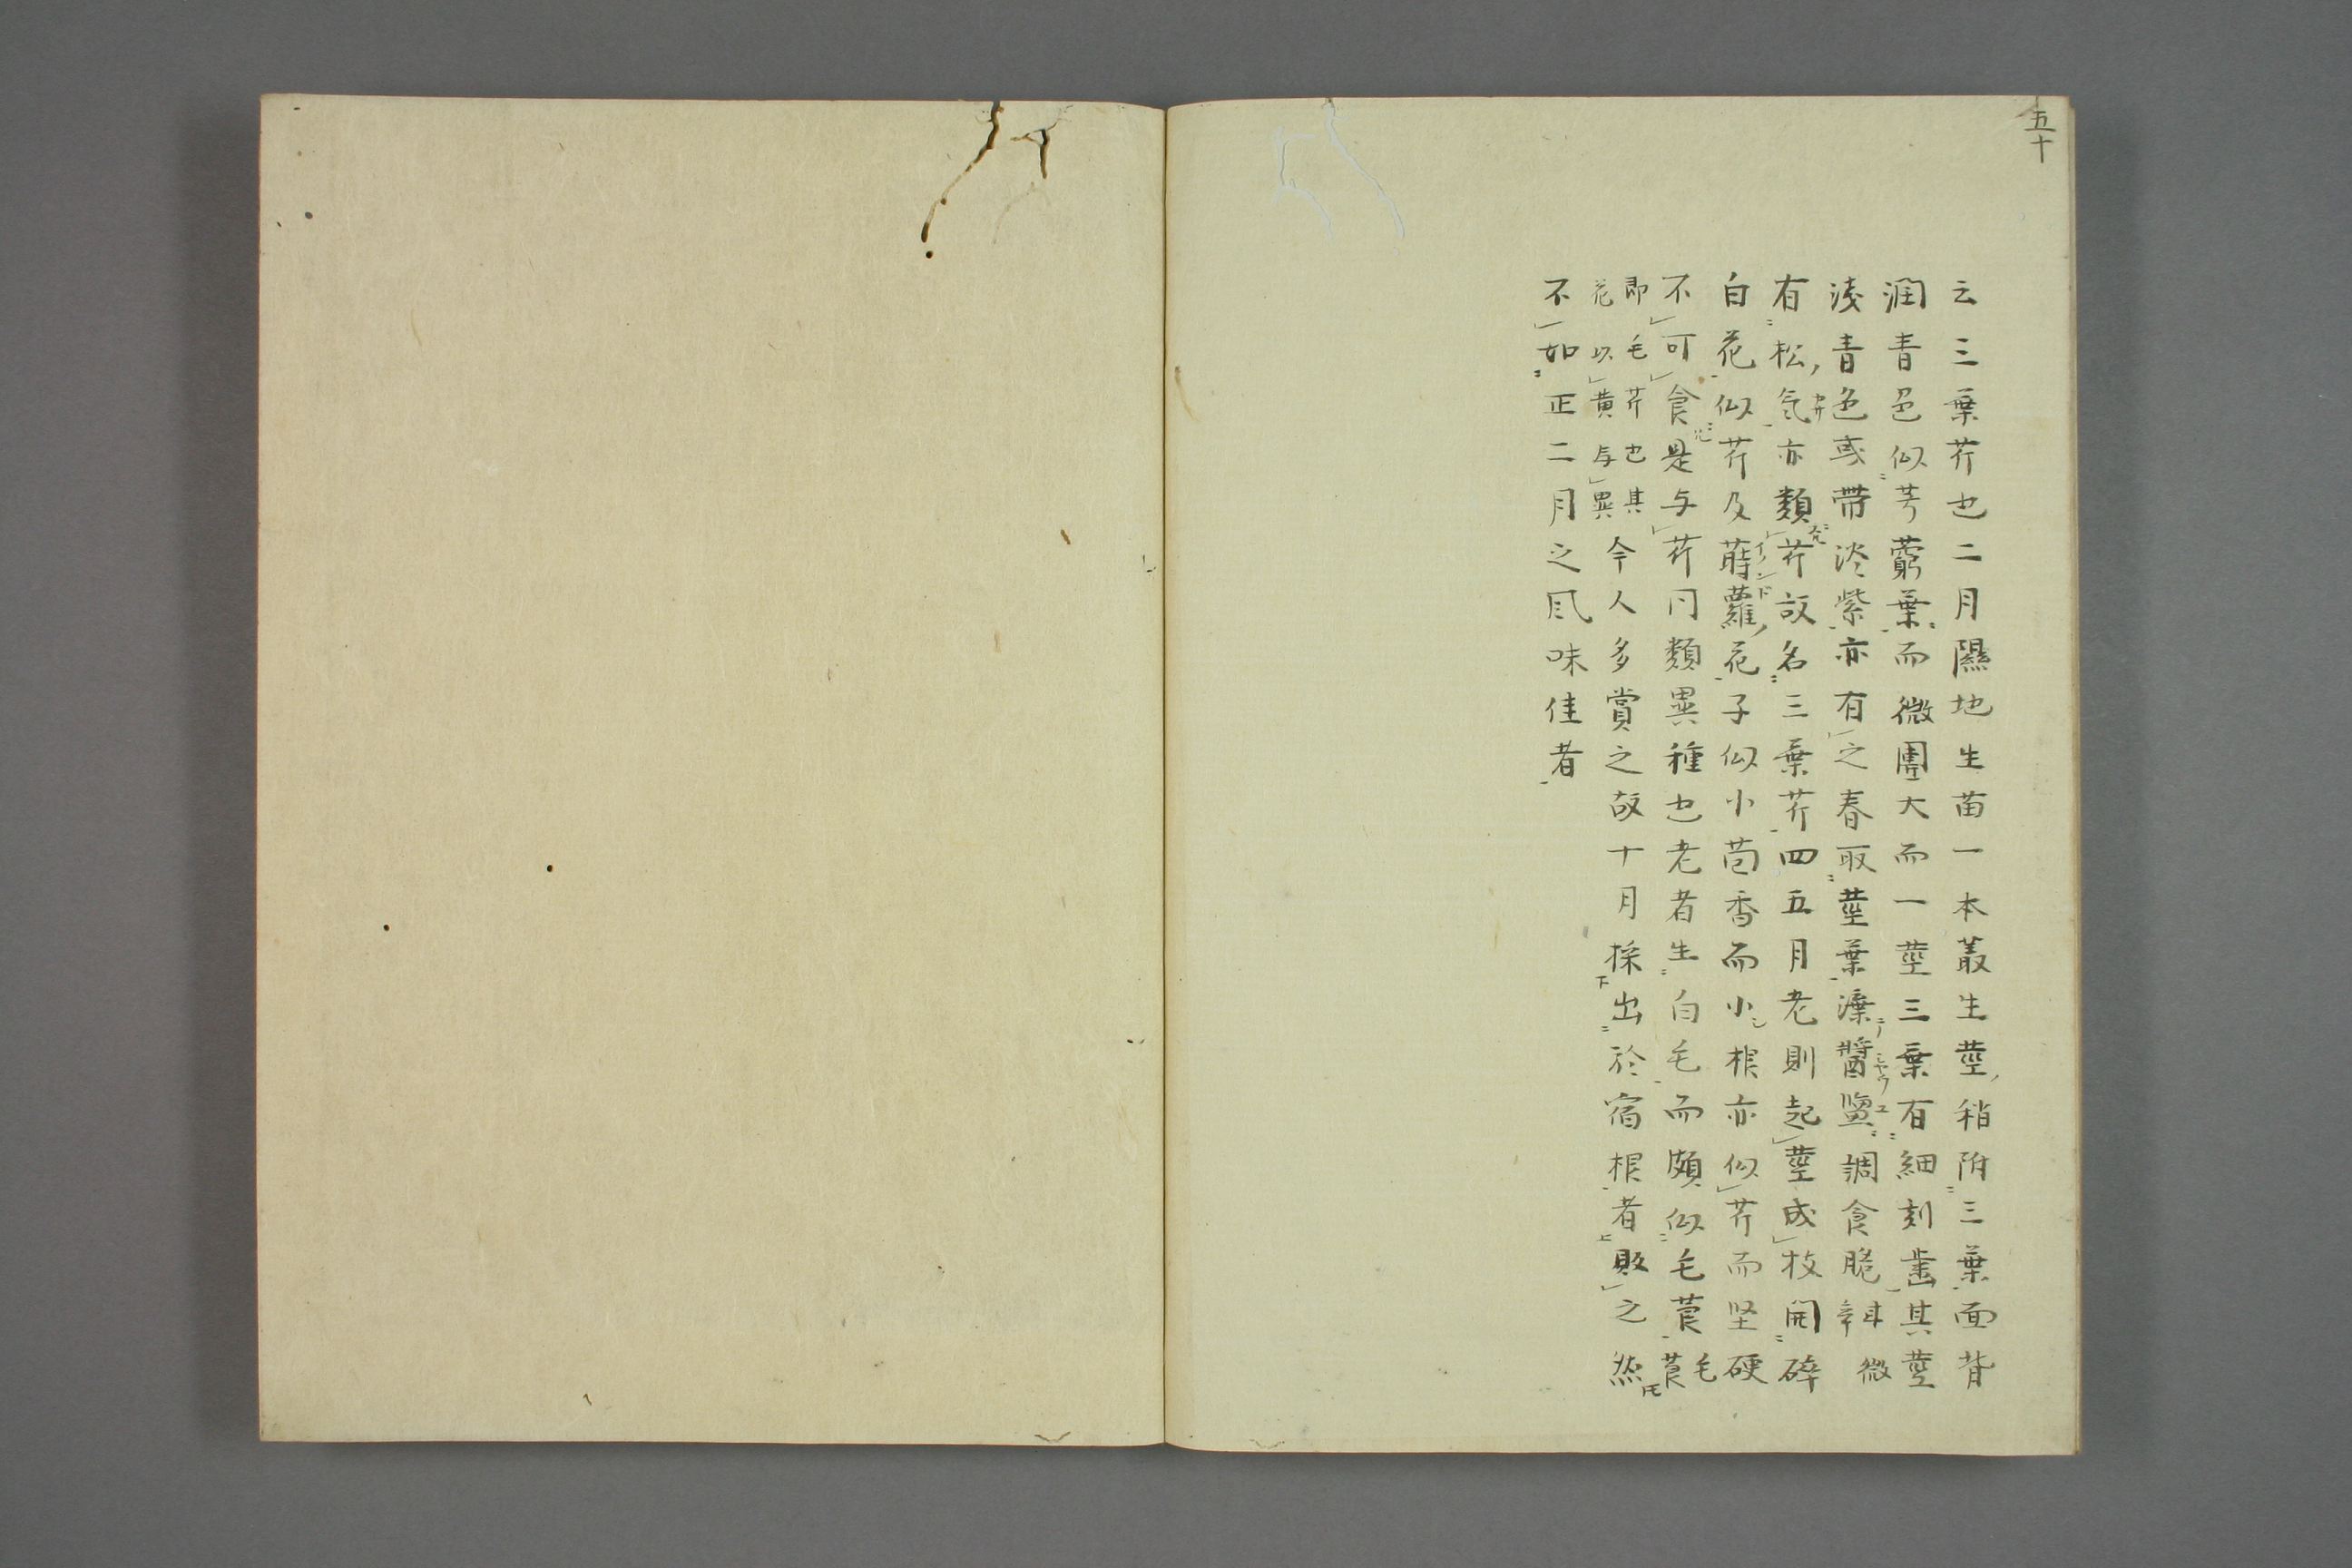 五十
云三葉芹也二月隰地生苗一本叢生莖稍附三葉面背
潤青色似芎藭葉而微團大而一莖三葉有細刻歯其莖
淺青色或帶淡紫亦有之春取莖葉濼醬鹽調食脆斜微
有松気亦類芹故名三葉芹四五月老則起莖成枝開碎
白花似芹及蒔蘿花子似小茴香而小根亦似芹而坚硬
不可食是与芹同類異種也老者生白毛而頗似毛莨毛莨
即毛芹也其
花以黄与異
今人多賞之故十月採出於宿根者敗之然
不如正二月之風味佳者